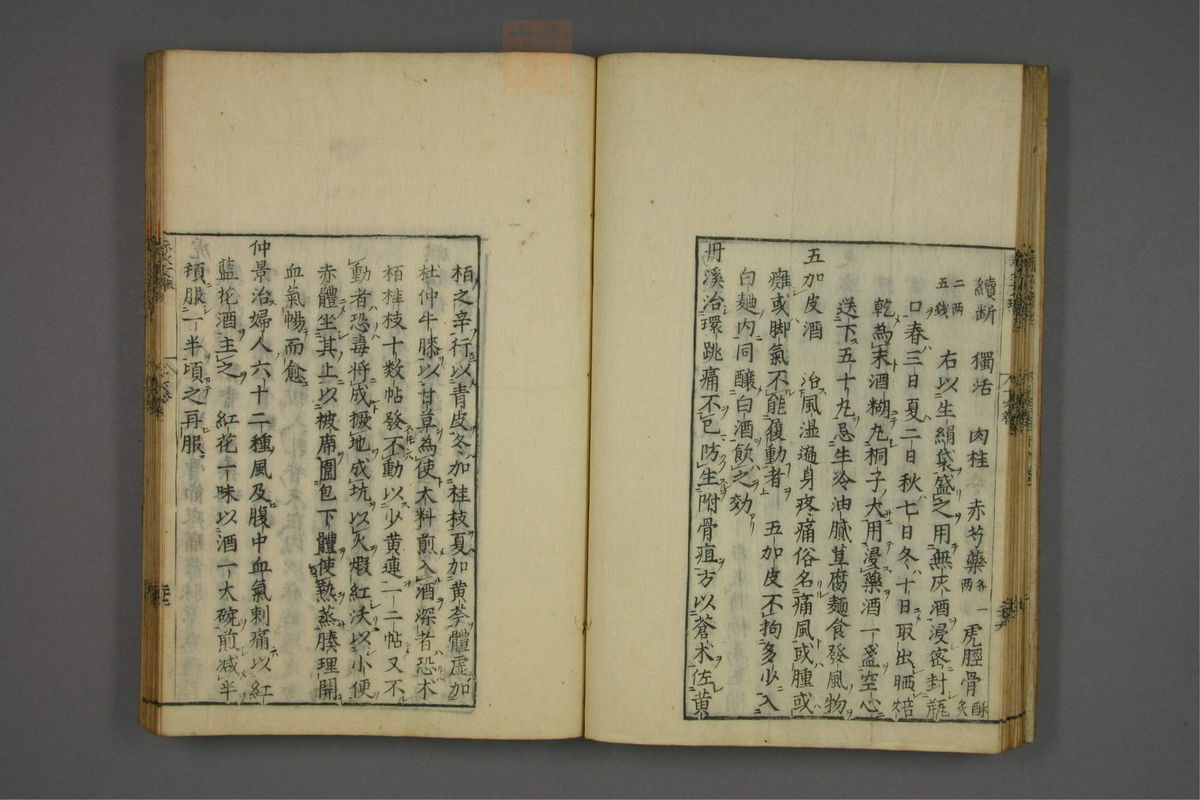 續断　獨活　肉桂　赤芍藥各一两　虎脛骨酥炙
二两五錢　右以生絹袋盛之用無灰酒浸密封瓶
口春三日夏二日秋七日冬十日取出晒焙
乾為末酒糊丸桐子大用浸藥酒一盞空心
送下五十丸忌生冷油膩豆腐麺食發風物
五加皮酒　治風湿遍身疼痛俗名痛風或腫或
癱或脚氣不能履動者　五加皮不拘多少入
白麯内同釀白酒飲之効
丹溪治環跳痛不已防生附骨疽方以蒼朮佐黄
栢之辛行以青皮冬加桂枝夏加黄芩體虚加
杜仲牛膝以甘草為使大料煎入酒深者恐朮
栢桂枝十数帖發不動以少黄連一二帖又不
動者恐毒将成撅地成坑以火煆紅沃以小便
赤體坐其上以被席圍包下體使熱蒸腠理開
血氣暢而愈
仲景治婦人六十二種風及腹中血氣刺痛以紅
藍花酒主之　紅花一味以酒一大碗煎减半
頓服一半頃之再服